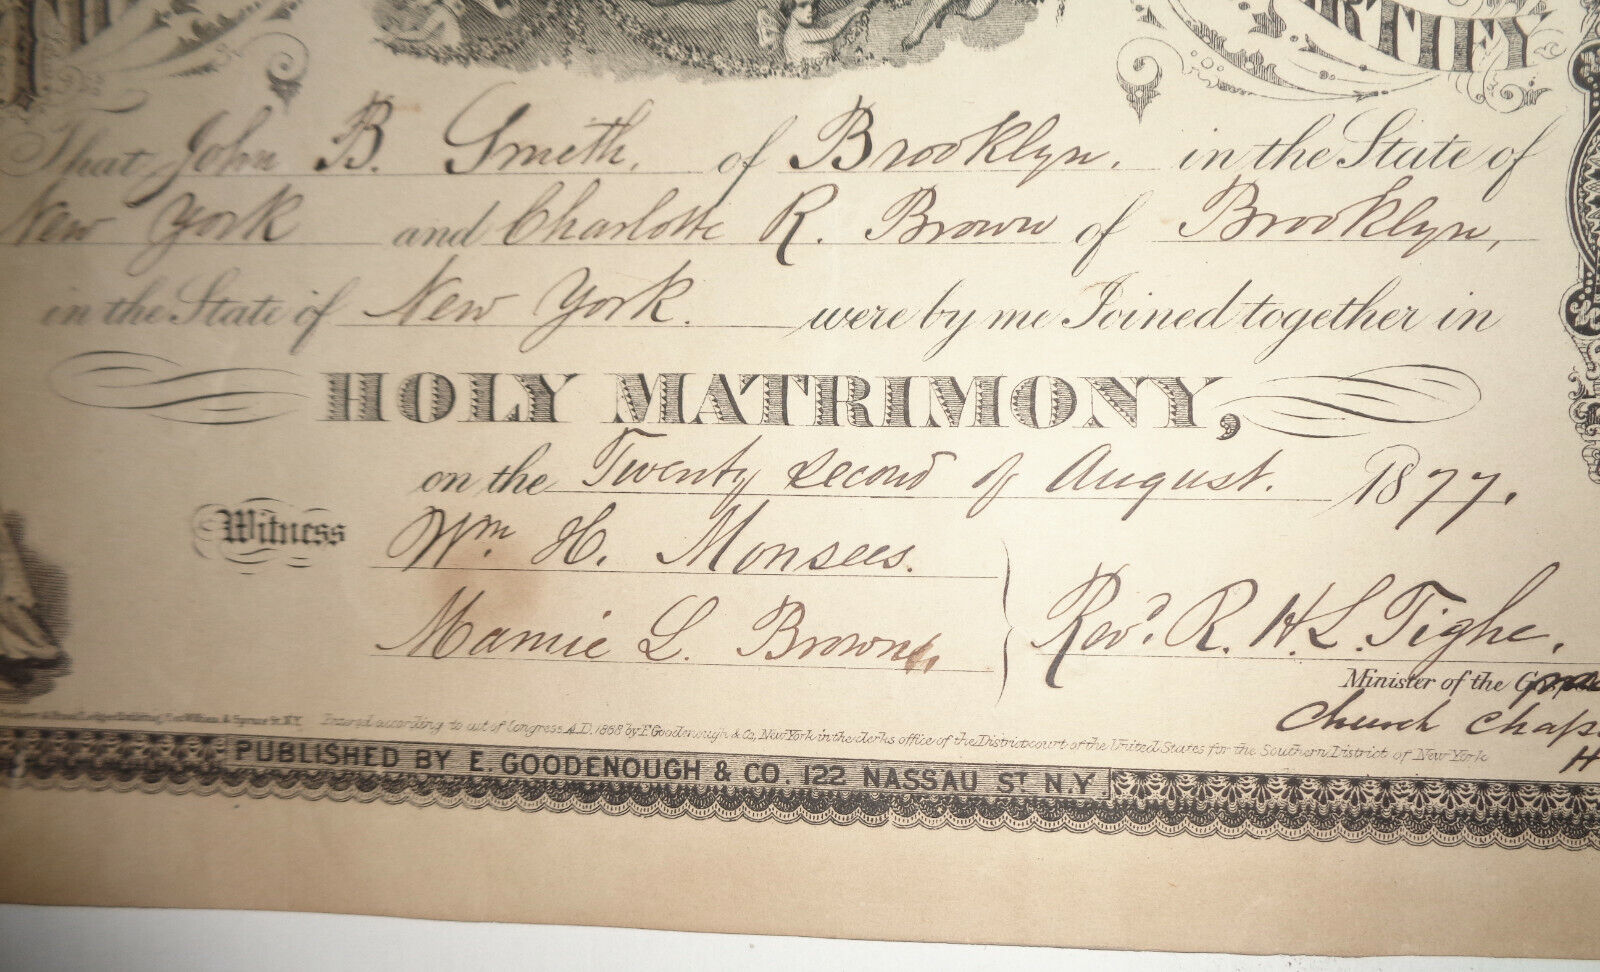 RTIFY
That John B. Smith, of Brooklyn, in the State of
New York and Charlotte R. Brown of Brooklyn,
in the State of New York. were by me Joined together in
HOLY MATRIMONY,
on the Twenty second of August. 1877.
Witness Wm H. Monsees.
Mamie L. Brown. Revd. R. H. L. Tighe.
Minister of the
Church Chap
H
William & Spruce St. N.Y. Entered according to act of Congress A.D. 1868 by E. Goodenough & Co, New York in the clerks office of the District court of the United States for the Southern District of New York
PUBLISHED BY E. GOODENOUGH & CO. 122 NASSAU ST. N.Y